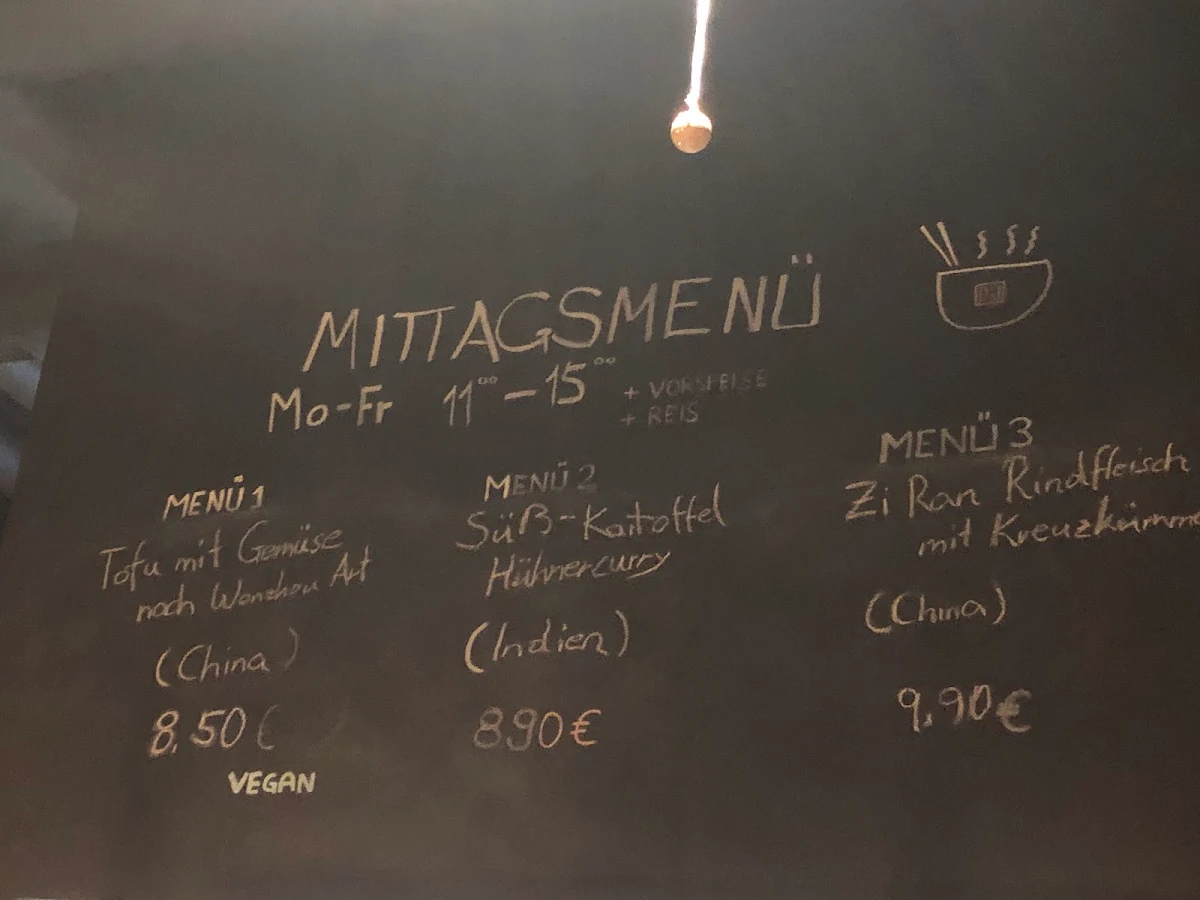 MITTAGSMENÜ
Mo-Fr 11⁰⁰-15⁰⁰ + VORSPEISE
+ REIS
MENÜ 1
Tofu mit Gemüse
nach Wenzhou Art
(China)
8,50€
VEGAN
MENÜ 2
Süß-Kartoffel
Hühnercurry
(Indien)
8,90€
MENÜ 3
Zi Ran Rindfleisch
mit Kreuzkümme
(China)
9,90€